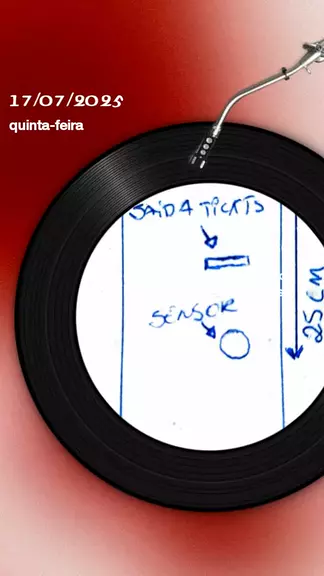 17/07/2025
quinta-feira
SAIDA TICKTS
SENSOR
25 CM